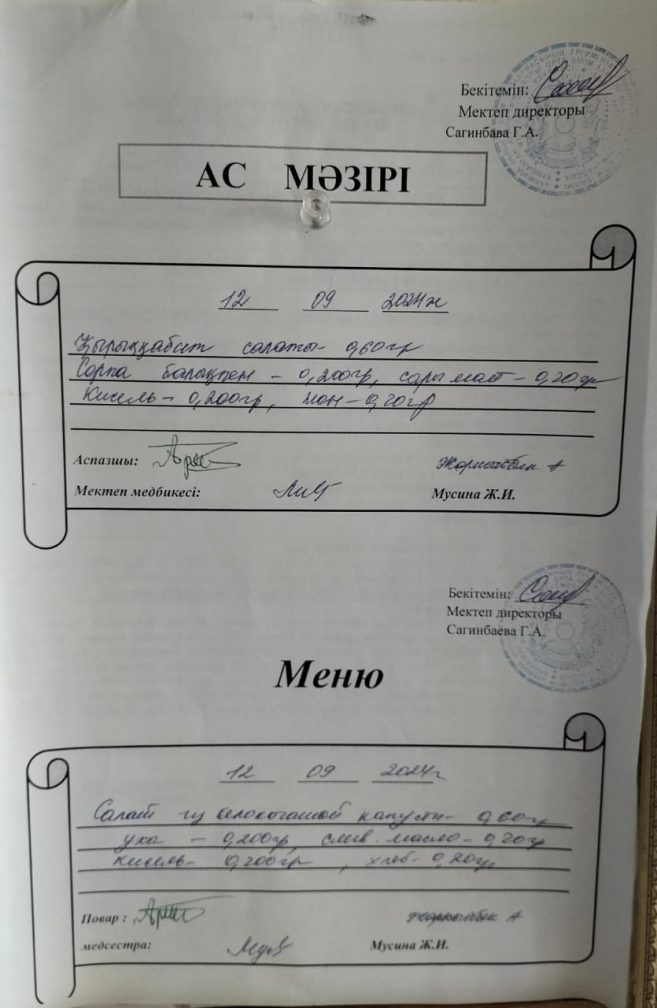 Бекітемін:
Мектеп директоры
Сагинбава Г.А.
АС МӘЗІРІ
12 09 2024ж
Қырыққабат салаты - 0,60гр
Сорпа балықпен - 0,200гр, сары май - 0,20гр
Кисель - 0,200гр, нан - 0,20гр
Аспазшы:
Мектеп медбикесі: Мусина Ж.И.
Бекітемін:
Мектеп директоры
Сагинбаева Г.А.
Меню
12 09 2024г
Салат из белокочаной капусты - 0,60гр
уха - 0,200гр, слив. масло - 0,20гр
кисель - 0,200гр, хлеб - 0,20гр
Повар :
медсестра: Мусина Ж.И.